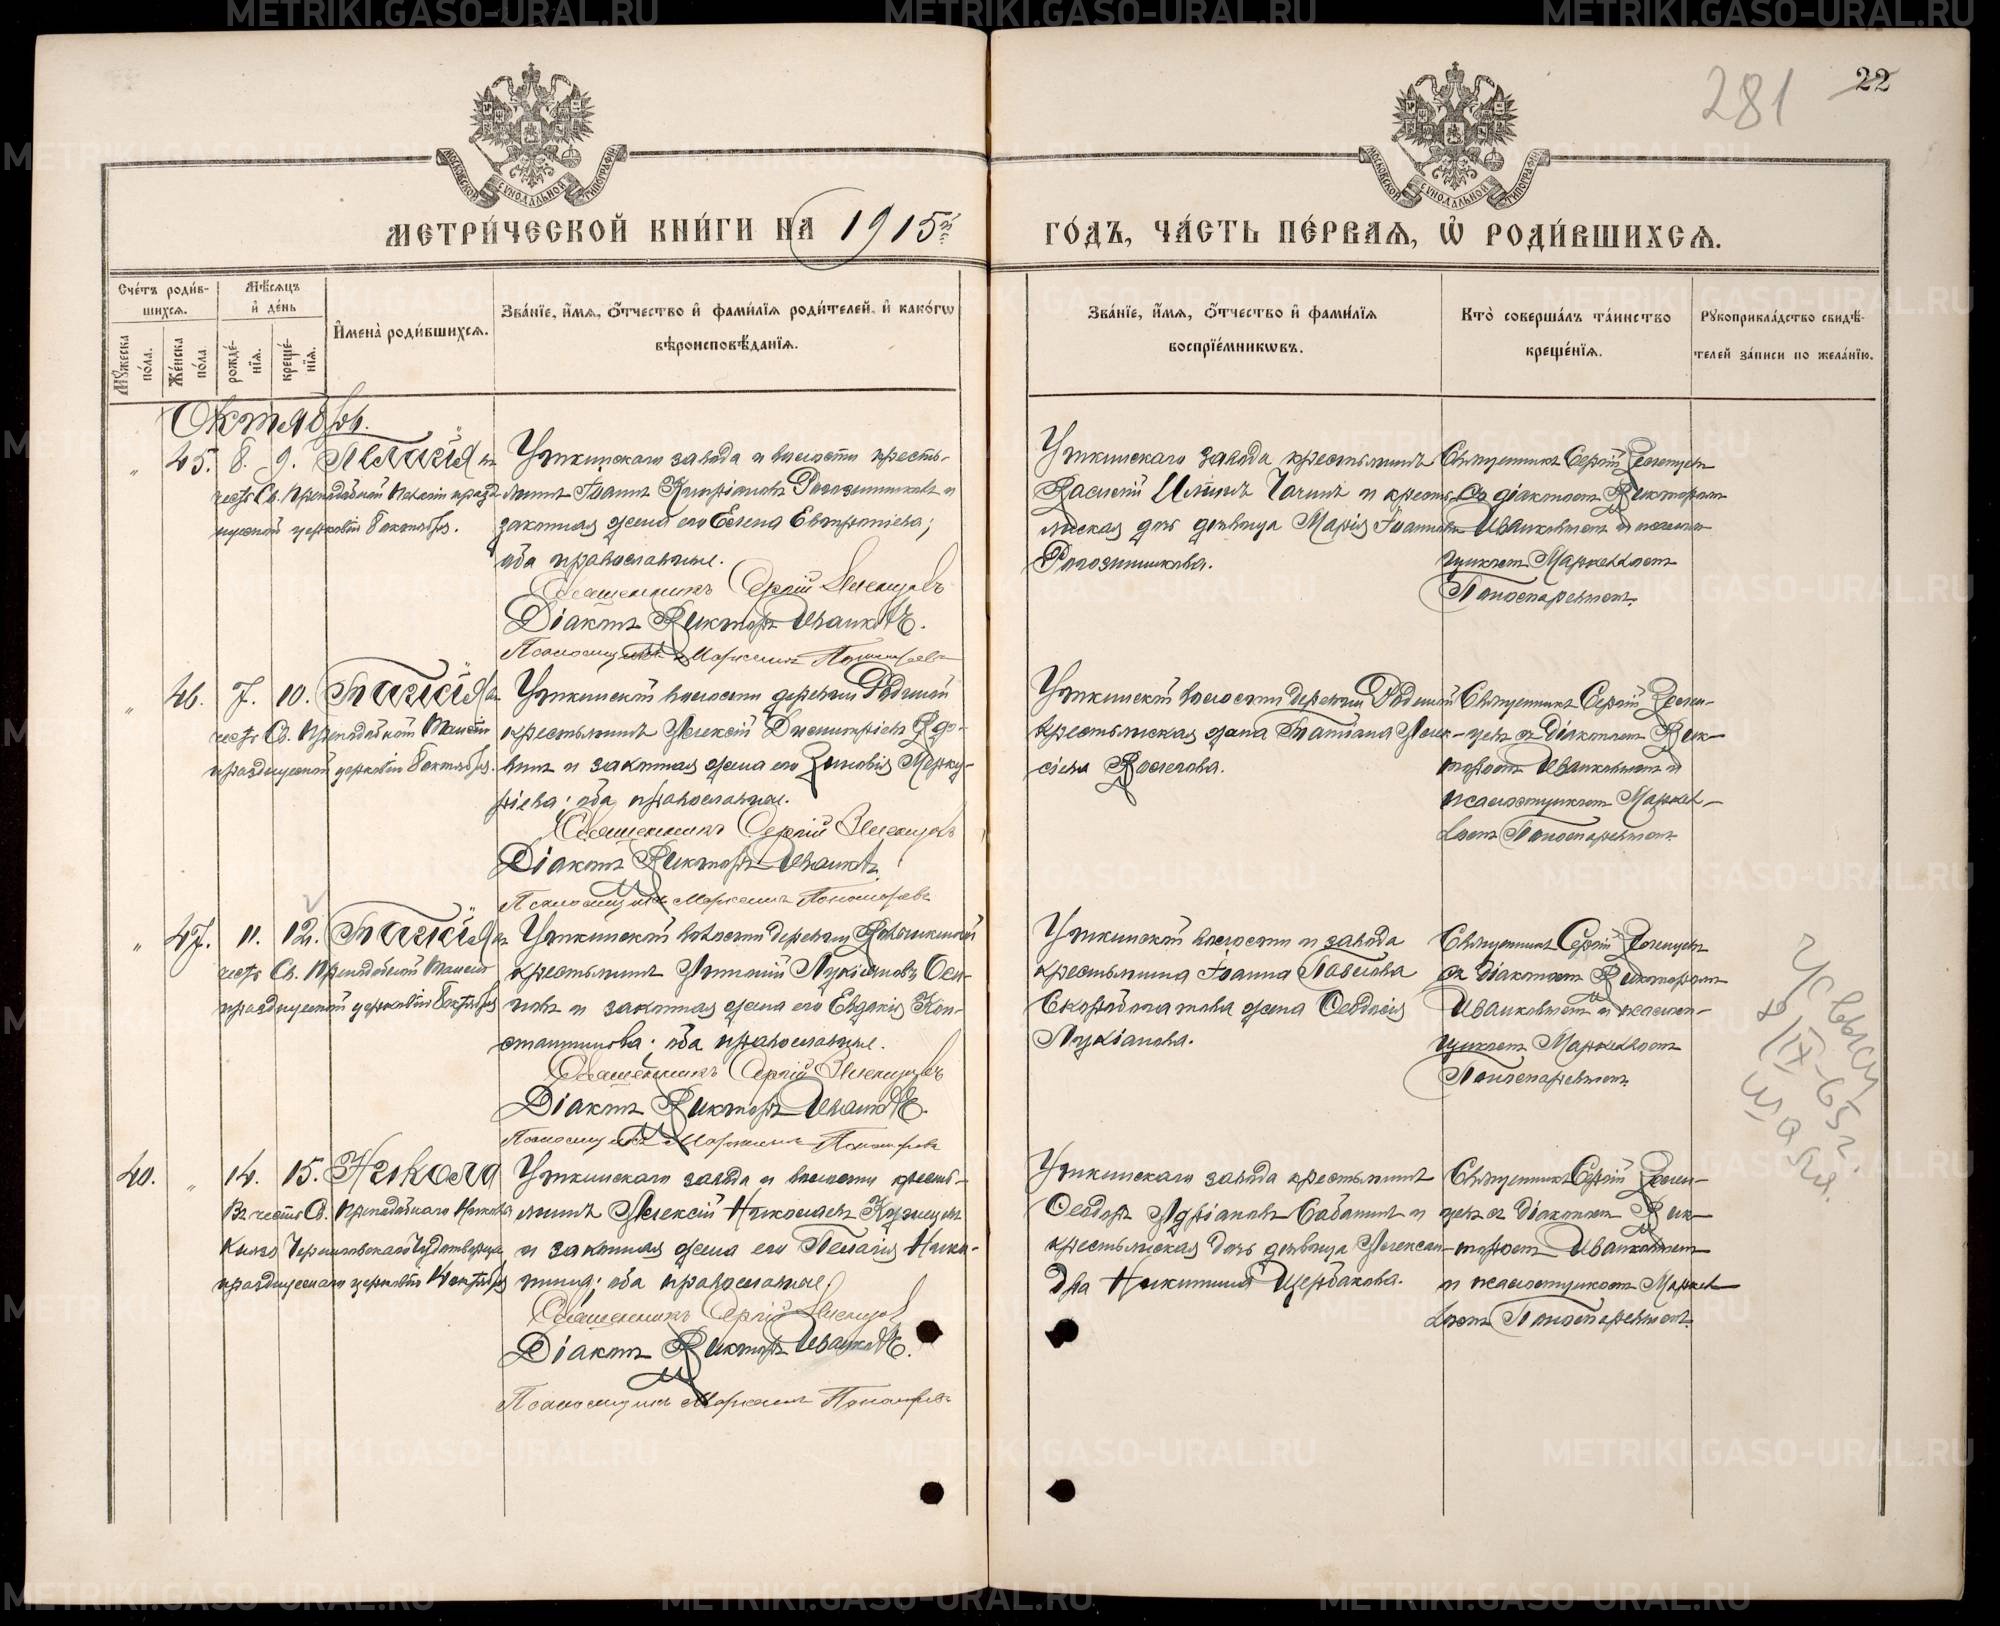 281 22
МОСКОВСКОЙ СѴНОДАЛЬНОЙ ТИПОГРАФІИ
МОСКОВСКОЙ СѴНОДАЛЬНОЙ ТИПОГРАФІИ
МЕТРИ́ЧЕСКОЙ КНИ́ГИ НА 1915й
ГО́ДЪ, ЧА́СТЬ ПЕ́РВАѦ, Ѡ҆ РОДИ́ВШИХСѦ.
Сче́тъ роди́в-
шихсѧ.
Мꙋ́жеска по́ла.
Же́нска по́ла.
Мѣ́сѧцъ и҆ де́нь
рожде́-
нїѧ.
креще́-
нїѧ.
И҆мена̀ роди́вшихсѧ.
Зва́нїе, и҆́мѧ, ѻ҆́тчество и҆ фами́лїѧ роди́телей, и҆ како́гѡ
вѣроисповѣ́данїѧ.
Зва́нїе, и҆́мѧ, ѻ҆́тчество и҆ фами́лїѧ
воспрїе́мникѡвъ.
Кто̀ соверша́лъ та́инство
креще́нїѧ.
Рꙋкоприкла́дство свидѣ́-
телей за́писи по жела́нїю.
Октябрь.
" 45. 8. 9. Пелагія въ
честь Св. Преподобной Пелагіи празд
нуемой церковію 8 октября.
Уткинскаго завода и волости кресть-
янинъ Іоаннъ Кипріановъ Рогозинниковъ и
законная жена его Елена Евтропіева;
оба православные.
Священникъ Сергій
Діаконъ Викторъ Иванковъ.
Псаломщикъ Маркеллъ Пономаревъ
Уткинскаго завода крестьянинъ
Василій Ильинъ Чачинъ и кресть-
янская дочь дѣвица Марія Іоаннова
Рогозинникова.
Священникъ Сергій
съ діакономъ Викторомъ
Иванковымъ и псалом-
щикомъ Маркелломъ
Пономаревымъ.
" 46. 7. 10. Таисія въ
честь Св. Преподобной Таисіи
празднуемой церковію 8 октября.
Уткинской волости деревни
крестьянинъ Алексій Димитріевъ Вдо-
винъ и законная жена его Зиновія Мерку-
рієва; оба православные.
Священникъ Сергій
Діаконъ Викторъ Иванковъ.
Псаломщикъ Маркеллъ Пономаревъ
Уткинской волости деревни
крестьянская жена Татіана Алек-
сіева
Священникъ Сергій
съ Діакономъ Вик-
торомъ Иванковымъ и
псаломщикомъ Маркел-
ломъ Пономаревымъ
" 47. 11. 12. Таисія въ
честь Св. Преподобной Таисіи
празднуемой церковію 8 октября
Уткинской волости деревни
крестьянинъ Лукіановъ Оси-
повъ и законная жена его Евдокія Кон-
стантинова; оба православные.
Священникъ Сергій
Діаконъ Викторъ Иванковъ.
Псаломщикъ Маркеллъ Пономаревъ
Уткинской волости и завода
крестьянина Іоанна Павлова
жена Ѳеодосія
Лукіанова.
Священникъ Сергій
съ діакономъ Викторомъ
Иванковымъ и псалом-
щикомъ Маркелломъ
Пономаревымъ
40. " 14. 15. Никола
Въ честь Св. Преподобнаго Николы
Князя Черниговскаго Чудотворца
празднуемаго церковію 14 октября
Уткинскаго завода и волости кресть-
янинъ Алексій Николаевъ Кузнецовъ
и законная жена его Пелагія Ники-
тина; оба православные.
Священникъ Сергій
Діаконъ Викторъ Иванковъ.
Псаломщикъ Маркеллъ Пономаревъ
Уткинскаго завода крестьянинъ
Ѳеодоръ Адріановъ Бабинъ и
крестьянская дочь дѣвица Алексан-
дра Никитина Щербакова.
Священникъ Сергій
съ Діакономъ Вик-
торомъ Иванковымъ
и псаломщикомъ Маркел-
ломъ Пономаревымъ.
METRIKI.GASO-URAL.RU